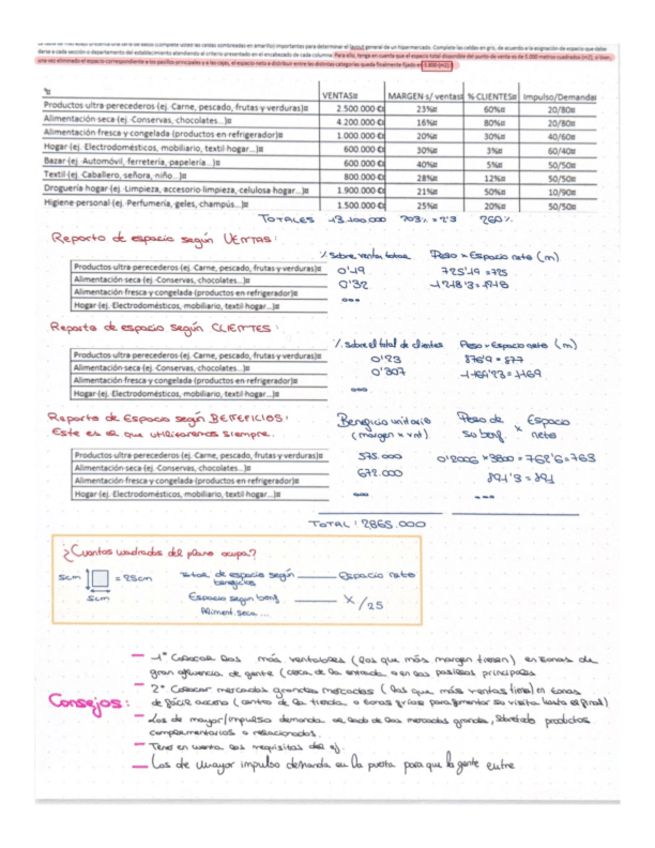 La tabla de más abajo presenta una serie de datos (complete usted las celdas sombreadas en amarillo) importantes para determinar el layout general de un hipermercado. Complete las celdas en gris, de acuerdo a la asignación de espacio que debe
darse a cada sección o departamento del establecimiento atendiendo al criterio presentado en el encabezado de cada columna. Para ello, tenga en cuenta que el espacio total disponible del punto de venta es de 5.000 metros cuadrados (m2), si bien,
una vez eliminado el espacio correspondiente a los pasillos principales y a las cajas, el espacio neto a distribuir entre las distintas categorías queda finalmente fijado en 3.800 (m2).
VENTAS¤ MARGEN s/ ventas¤ % CLIENTES¤ Impulso/Demanda¤
Productos ultra-perecederos (ej. Carne, pescado, frutas y verduras)¤ 2.500.000 €¤ 23%¤ 60%¤ 20/80¤
Alimentación seca (ej. Conservas, chocolates...)¤ 4.200.000 €¤ 16%¤ 80%¤ 20/80¤
Alimentación fresca y congelada (productos en refrigerador)¤ 1.000.000 €¤ 20%¤ 30%¤ 40/60¤
Hogar (ej. Electrodomésticos, mobiliario, textil hogar...)¤ 600.000 €¤ 30%¤ 3%¤ 60/40¤
Bazar (ej. Automóvil, ferretería, papelería...)¤ 600.000 €¤ 40%¤ 5%¤ 50/50¤
Textil (ej. Caballero, señora, niño...)¤ 800.000 €¤ 28%¤ 12%¤ 50/50¤
Droguería hogar (ej. Limpieza, accesorio limpieza, celulosa hogar...)¤ 1.900.000 €¤ 21%¤ 50%¤ 10/90¤
Higiene personal (ej. Perfumería, geles, champús...)¤ 1.500.000 €¤ 25%¤ 20%¤ 50/50¤
TOTALES 13.100.000 203% = 2'3 260%
Reparto de espacio según VENTAS:
% Sobre ventas totales Peso x Espacio neto (m)
Productos ultra-perecederos (ej. Carne, pescado, frutas y verduras)¤ 0'19 725'19 = 725
Alimentación seca (ej. Conservas, chocolates...)¤ 0'32 1218'3 = 1218
Alimentación fresca y congelada (productos en refrigerador)¤ ...
Hogar (ej. Electrodomésticos, mobiliario, textil hogar...)¤
Reparto de espacio según CLIENTES:
% sobre el total de clientes Peso x Espacio neto (m)
Productos ultra-perecederos (ej. Carne, pescado, frutas y verduras)¤ 0'23 876'9 = 877
Alimentación seca (ej. Conservas, chocolates...)¤ 0'307 1169'23 = 1169
Alimentación fresca y congelada (productos en refrigerador)¤ ...
Hogar (ej. Electrodomésticos, mobiliario, textil hogar...)¤
Reparto de Espacio según BENEFICIOS:
Este es el que utilizaremos siempre.
Beneficio unitario Peso de x Espacio
(margen x vnt) su benf neto
Productos ultra-perecederos (ej. Carne, pescado, frutas y verduras)¤ 575.000 0'2006 x 3800 = 762'6 = 763
Alimentación seca (ej. Conservas, chocolates...)¤ 672.000 891'3 = 891
Alimentación fresca y congelada (productos en refrigerador)¤
Hogar (ej. Electrodomésticos, mobiliario, textil hogar...)¤ ... ...
TOTAL: 2865.000
¿Cuantos cuadrados del plano ocupa?
5cm = 25cm Total de espacio según beneficios Espacio neto
5cm Espacio según benf X/25
Aliment. seca...
Consejos:
— 1º Colocar las más rentables (las que más margen tienen) en zonas de
gran afluencia de gente (cerca de la entrada o en los pasillos principales
— 2º Colocar mercados grandes mercados (las que más ventas tiene) en zonas
de fácil acceso (centro de la tienda o zonas frías para fomentar su visita hasta el final)
— Los de mayor/impulso demanda al lado de los mercados grandes, sobretodo productos
complementarios o relacionados.
— Tener en cuenta los requisitos del ej.
— Los de mayor impulso demanda en la puerta para que la gente entre